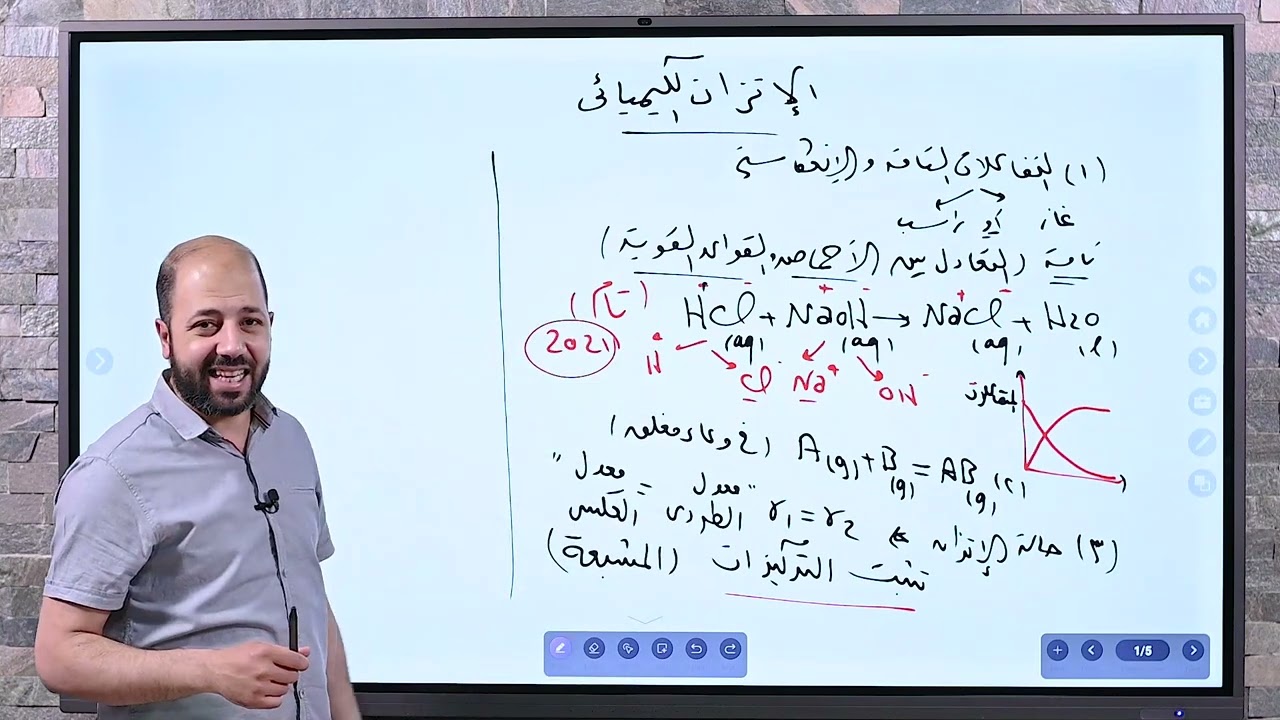 الإتزان الكيميائى
(١) التفاعلات التامة والإنعكاسية
غاز أو راسب
تامة (التعادل بين الأحماض والقواعد القوية)
HCl + NaOH → NaCl + H2O
(تام)
(aq) (aq) (aq) (l)
2021
H⁺ Cl⁻ Na⁺ OH⁻
(٢) A(g) + B(g) = AB(g) (فى وعاء مغلق)
(٣) حالة الإتزان ⇐ r1 = r2 "معدل الطردى = معدل العكسى"
تثبت التركيزات (المشبعة)
1/5